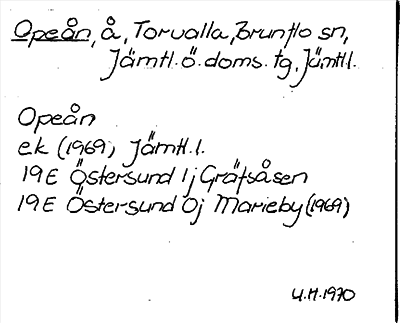 Opeån, å, Torvalla, Brunflo sn,
Jämtl. ö. doms. tg, Jämtl.
Opeån
ek (1969) Jämtl. l.
19E Östersund 1j Gräfsåsen
19E Östersund 0j Marieby (1969)
U.H. 1970